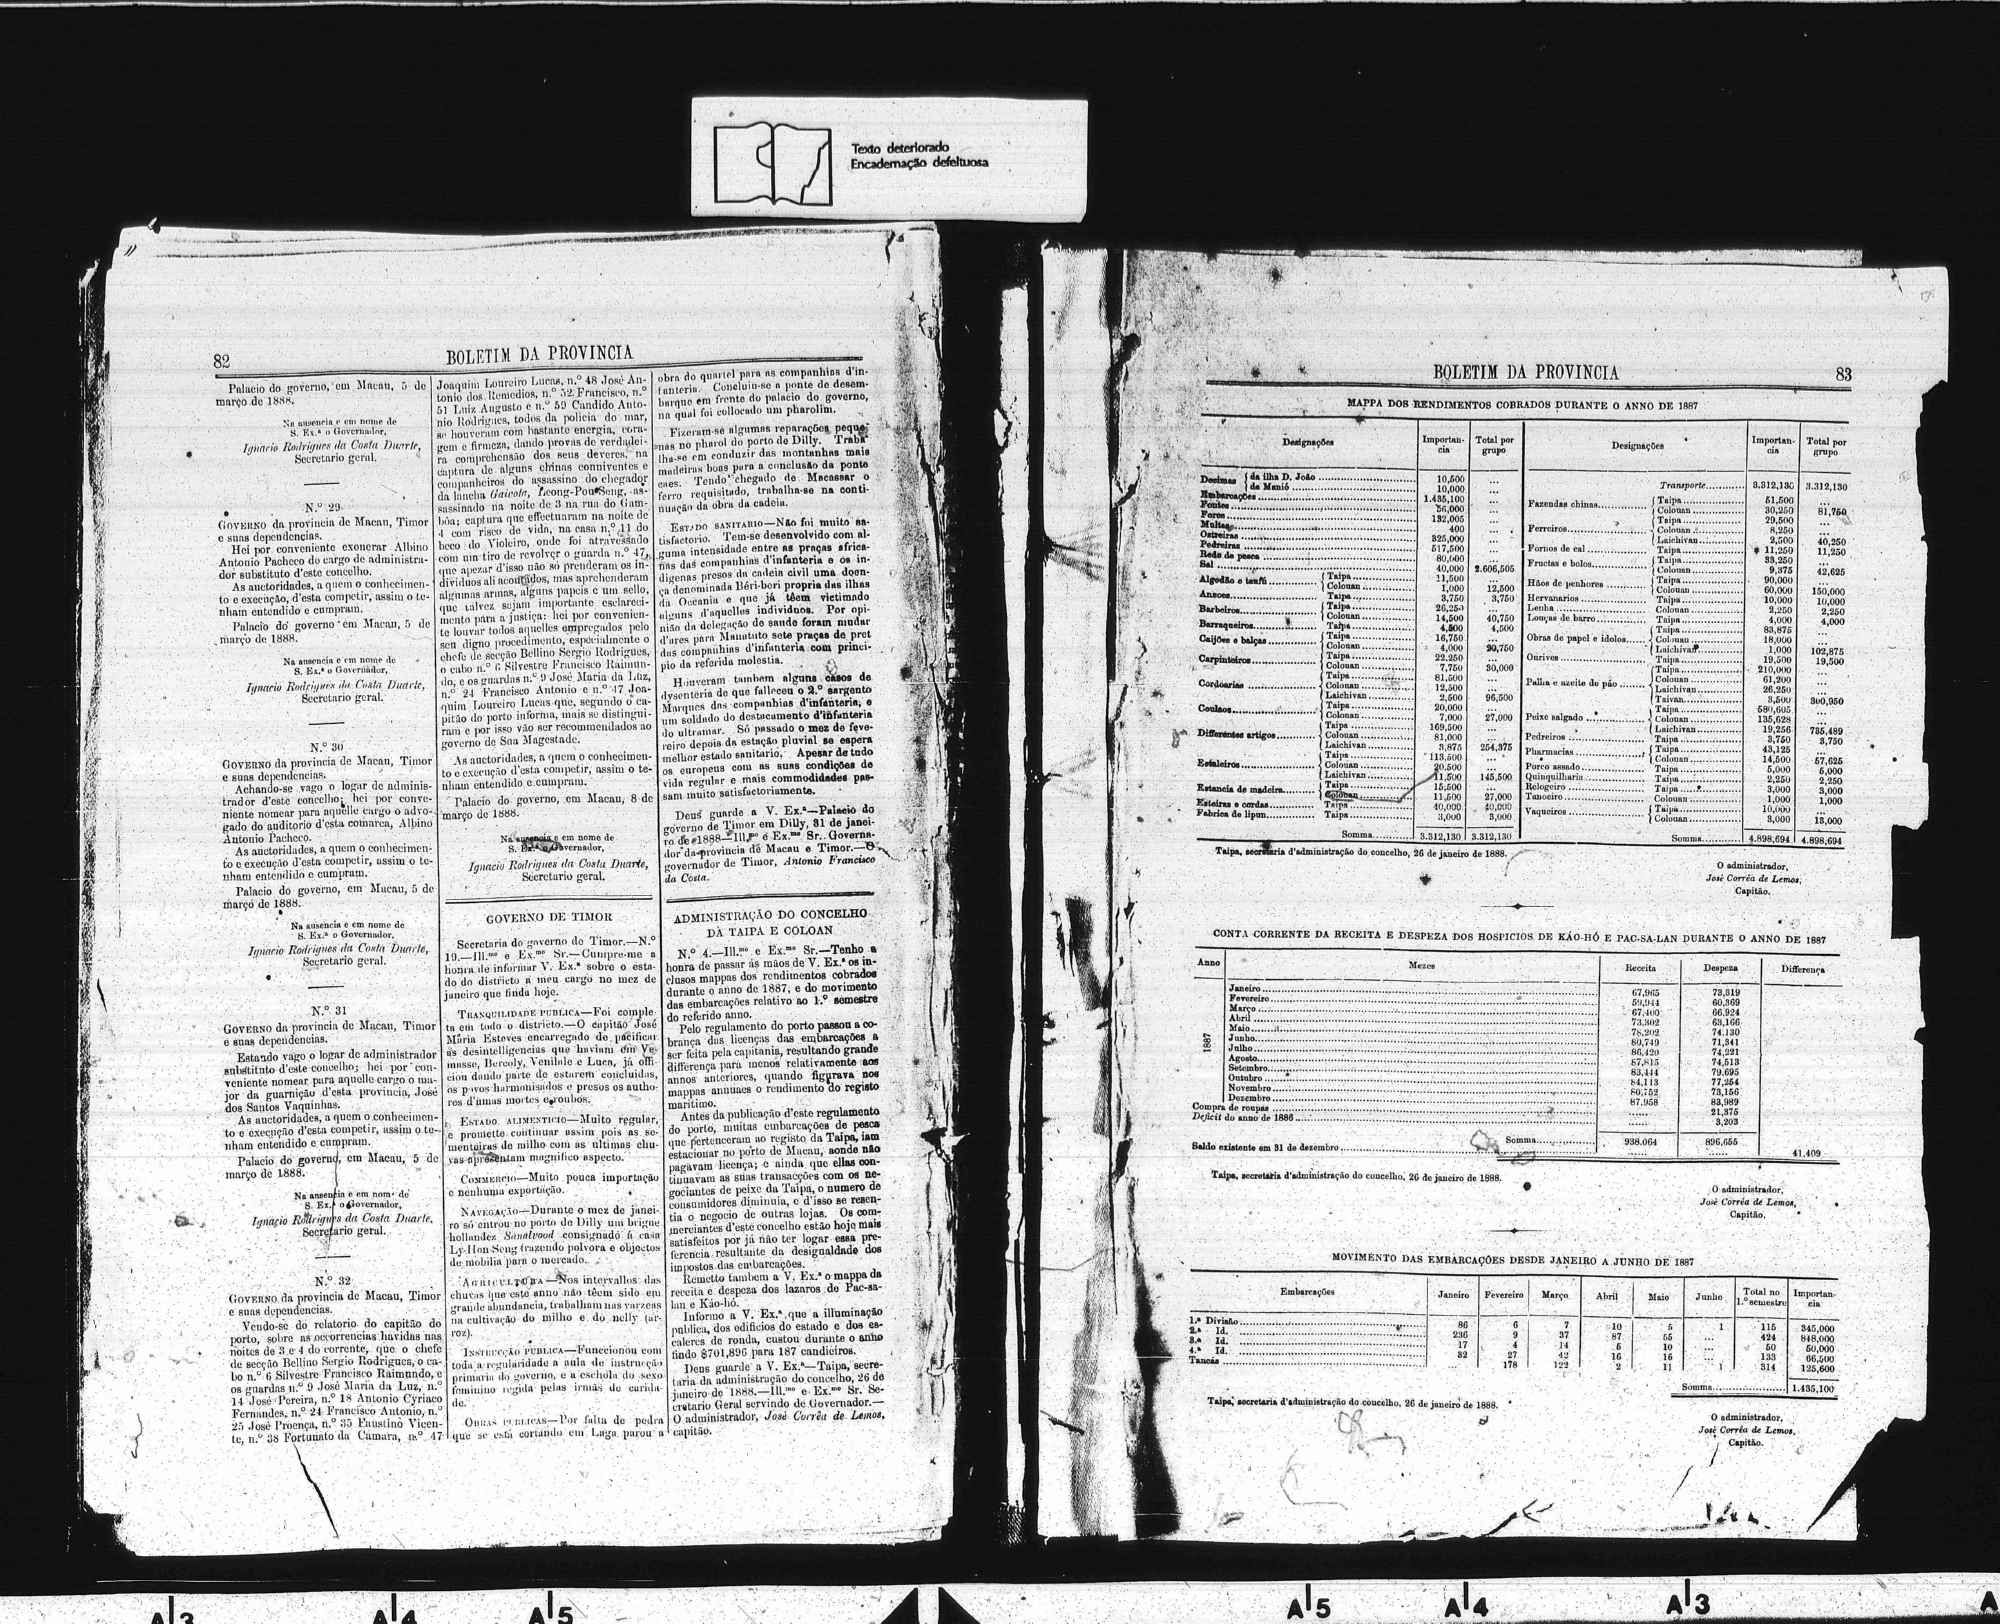 Texto deteriorado
Encadernação defeituosa
82
BOLETIM DA PROVINCIA
Palacio do governo, em Macau, 5 de
março de 1888.
Na ausencia e em nome de
S. Ex.ª o Governador,
Ignacio Rodrigues da Costa Duarte,
Secretario geral.
N.º 29
GOVERNO da provincia de Macau, Timor
e suas dependencias.
Hei por conveniente exonerar Albino
Antonio Pacheco do cargo de administra-
dor substituto d'este concelho.
As auctoridades, a quem o conhecimen-
to e execução, d'esta competir, assim o te-
nham entendido e cumpram.
Palacio do governo em Macau, 5 de
março de 1888.
Na ausencia e em nome de
S. Ex.ª o Governador,
Ignacio Rodrigues da Costa Duarte,
Secretario geral.
N.º 30
GOVERNO da provincia de Macau, Timor
e suas dependencias.
Achando-se vago o logar de adminis-
trador d'este concelho; hei por conve-
niente nomear para aquelle cargo o advo-
gado do auditorio d'esta comarca, Albino
Antonio Pacheco.
As auctoridades, a quem o conhecimen-
to e execução d'esta competir, assim o te-
nham entendido e cumpram.
Palacio do governo, em Macau, 5 de
março de 1888.
Na ausencia e em nome de
S. Ex.ª o Governador,
Ignacio Rodrigues da Costa Duarte,
Secretario geral.
N.º 31
GOVERNO da provincia de Macau, Timor
e suas dependencias.
Estando vago o logar de administrador
substituto d'este concelho; hei por con-
veniente nomear para aquelle cargo o ma-
jor da guarnição d'esta provincia, José
dos Santos Vaquinhas.
As auctoridades, a quem o conhecimen-
to e execução d'esta competir, assim o te-
nham entendido e cumpram.
Palacio do governo, em Macau, 5 de
março de 1888.
Na ausencia e em nome de
S. Ex.ª o Governador,
Ignacio Rodrigues da Costa Duarte,
Secretario geral.
N.º 32
GOVERNO da provincia de Macau, Timor
e suas dependencias.
Vendo-se do relatorio do capitão do
porto, sobre as occorrencias havidas nas
noites de 3 e 4 do corrente, que o chefe
de secção Bellino Sergio Rodrigues, o ca-
bo n.º 6 Silvestre Francisco Raimundo, e
os guardas n.º 9 José Maria da Luz, n.º
14 José Pereira, n.º 18 Antonio Cyriaco
Fernandes, n.º 24 Francisco Antonio, n.º
25 José Proença, n.º 35 Faustino Vicen-
te, n.º 38 Fortunato da Camara, n.º 47
Joaquim Loureiro Lucas, n.º 48 José An-
tonio dos Remedios, n.º 52 Francisco, n.º
51 Luiz Augusto e n.º 59 Candido Anto-
nio Rodrigues, todos da policia do mar,
se houveram com bastante energia, cora-
gem e firmeza, dando provas de verdadei-
ra comprehensão dos seus deveres, na
captura de alguns chinas conniventes e
companheiros do assassino do chegador
da lancha Gaivota, Leong-Pou-Song, as-
sassinado na noite de 3 na rua do Gam-
bôa; captura que effectuaram na noite de
4 com risco de vida, na casa n.º 11 do
beco do Violeiro, onde foi atravessado
com um tiro de revolver o guarda n.º 47,
que apezar d'isso não só prenderam os in-
dividuos ali acoutados, mas aprehenderam
algumas armas, alguns papeis e um sello,
que talvez sejam importante esclareci-
mento para a justiça: hei por convenien-
te louvar todos aquelles empregados pelo
seu digno procedimento, especialmente o
chefe de secção Bellino Sergio Rodrigues,
o cabo n.º 6 Silvestre Francisco Raimun-
do, e os guardas n.º 9 José Maria da Luz,
n.º 24 Francisco Antonio e n.º 47 Joa-
quim Loureiro Lucas que, segundo o ca-
pitão do porto informa, mais se distingui-
ram e por isso vão ser recommendados ao
governo de Sua Magestade.
As auctoridades, a quem o conhecimen-
to e execução d'esta competir, assim o te-
nham entendido e cumpram.
Palacio do governo, em Macau, 8 de
março de 1888.
Na ausencia e em nome de
S. Ex.ª o Governador,
Ignacio Rodrigues da Costa Duarte,
Secretario geral.
GOVERNO DE TIMOR
Secretaria do governo de Timor.—N.º
19.—Ill.mo e Ex.mo Sr.—Cumpre-me a
honra de informar V. Ex.ª sobre o esta-
do do districto a meu cargo no mez de
janeiro que finda hoje.
TRANQUILIDADE PUBLICA—Foi comple-
ta em todo o districto.—O capitão José
Maria Esteves encarregado de pacificar
as desintelligencias que haviam em Ve-
masse, Bercoly, Venilale e Luca, já offi-
ciou dando parte de estarem concluidas,
os povos harmonisados e presos os autho-
res d'umas mortes e roubos.
ESTADO ALIMENTICIO—Muito regular,
e promette continuar assim pois as se-
menteiras de milho com as ultimas chu-
vas apresentam magnifico aspecto.
COMMERCIO—Muito pouca importação
e nenhuma exportação.
NAVEGAÇÃO—Durante o mez de janei-
ro só entrou no porto de Dilly um brigue
hollandez Sandlvood consignado á casa
Ly-Hon-Seng trazendo polvora e objectos
de mobilia para o mercado.
AGRICULTURA—Nos intervallos das
chuvas que este anno não têem sido em
grande abundancia, trabalham nas varzeas
na cultivação do milho e do nelly (ar-
roz).
INSTRUCÇÃO PUBLICA—Funccionou com
toda a regularidade a aula de instrucção
primaria do governo, e a eschola do sexo
feminino regida pelas irmãs de carida-
de.
OBRAS PUBLICAS—Por falta de pedra
que se está cortando em Laga parou a
obra do quartel para as companhias d'in-
fanteria. Concluiu-se a ponte de desem-
barque em frente do palacio do governo,
na qual foi collocado um pharolim.
Fizeram-se algumas reparações peque-
nas no pharol do porto de Dilly. Traba-
lha-se em conduzir das montanhas mais
madeiras boas para a conclusão da ponte
caes. Tendo chegado de Macassar o
ferro requisitado, trabalha-se na conti-
nuação da obra da cadeia.
ESTADO SANITARIO—Não foi muito sa-
tisfactorio. Tem-se desenvolvido com al-
guma intensidade entre as praças africa-
nas das companhias d'infanteria e os in-
digenas presos da cadeia civil uma doen-
ça denominada Béri-bori propria das ilhas
da Oceania e que já têem victimado
alguns d'aquelles individuos. Por opi-
nião da delegação de saude foram mudar
d'ares para Manatuto sete praças de pret
das companhias d'infanteria com princi-
pio da referida molestia.
Houveram tambem alguns casos de
dysenteria de que falleceu o 2.º sargento
Marques das companhias d'infanteria, e
um soldado do destacamento d'infanteria
do ultramar. Só passado o mez de feve-
reiro depois da estação pluvial se espera
melhor estado sanitario. Apesar de tudo
os europeus com as suas condições de
vida regular e mais commodidades pas-
sam muito satisfactoriamente.
Deus guarde a V. Ex.ª—Palacio do
governo de Timor em Dilly, 31 de janei-
ro de 1888—Ill.mo e Ex.mo Sr. Governa-
dor da provincia de Macau e Timor.—O
governador de Timor, Antonio Francisco
da Costa.
ADMINISTRAÇÃO DO CONCELHO
DA TAIPA E COLOAN
N.º 4.—Ill.mo e Ex.mo Sr.—Tenho a
honra de passar ás mãos de V. Ex.ª os in-
clusos mappas dos rendimentos cobrados
durante o anno de 1887, e do movimento
das embarcações relativo ao 1.º semestre
do referido anno.
Pelo regulamento do porto passou a co-
brança das licenças das embarcações a
ser feita pela capitania, resultando grande
differença para menos relativamente aos
annos anteriores, quando figurava nos
mappas annuaes o rendimento do registo
maritimo.
Antes da publicação d'este regulamento
do porto, muitas embarcações de pesca
que pertenceram ao registo da Taipa, iam
estacionar no porto de Macau, aonde não
pagavam licença; e ainda que ellas con-
tinuavam as suas transacções com os ne-
gociantes de peixe da Taipa, o numero de
consumidores diminuia, e d'isso se resen-
tia o negocio de outras lojas. Os com-
merciantes d'este concelho estão hoje mais
satisfeitos por já não ter logar essa pre-
ferencia resultante da desigualdade dos
impostos das embarcações.
Remetto tambem a V. Ex.ª o mappa da
receita e despeza dos lazaros de Pac-sa-
lan e Káo-hó.
Informo a V. Ex.ª que a illuminação
publica, dos edificios do estado e dos es-
caleres de ronda, custou durante o anno
findo $701,896 para 187 candieiros.
Deus guarde a V. Ex.ª—Taipa, secre-
taria da administração do concelho, 26 de
janeiro de 1888.—Ill.mo e Ex.mo Sr. Se-
cretario Geral servindo de Governador.—
O administrador, José Corrêa de Lemos,
capitão.
BOLETIM DA PROVINCIA
83
MAPPA DOS RENDIMENTOS COBRADOS DURANTE O ANNO DE 1887
Designações Importan-cia Total por grupo Designações Importan-cia Total por grupo
Decimas da ilha D. João 10,500 ...
da Manió 10,000 ...
Embarcações 1.435,100 ...
Fontes 56,000 ...
Foros 132,005 ...
Multas 400 ...
Ostreiras 325,000 ...
Pedreiras 517,500 ...
Rede de pesca 80,000 ...
Sal 40,000 2.606,505
Algodão e taufú Taipa 11,500 ...
Colouan 1,000 12,500
Anzoes Taipa 3,750 3,750
Barbeiros Taipa 26,250 ...
Colouan 14,500 40,750
Barraqueiros Taipa 4,500 4,500
Caijões e balças Taipa 16,750 ...
Colouan 4,000 20,750
Carpinteiros Taipa 22,250 ...
Colouan 7,750 30,000
Cordoarias Taipa 81,500 ...
Colouan 12,500 ...
Laichivan 2,500 96,500
Coulaos Taipa 20,000
Colouan 7,000 27,000
Differentes artigos Taipa 169,500 ...
Colouan 81,000 ...
Laichivan 3,875 254,375
Estaleiros Taipa 113,500 ...
Colouan 20,500 ...
Laichivan 11,500 145,500
Estancia de madeira Taipa 15,500 ...
Colouan 11,500 27,000
Esteiras e cordas Taipa 40,000 40,000
Fabrica de lipum Taipa 3,000 3,000
Somma 3.312,130 3.312,130
Transporte 3.312,130 3.312,130
Fazendas chinas Taipa 51,500 ...
Colouan 30,250 81,750
Ferreiros Taipa 29,500 ...
Colouan 8,250 ...
Laichivan 2,500 40,250
Fornos de cal Taipa 11,250 11,250
Fructas e bolos Taipa 33,250 ...
Colouan 9,375 42,625
Hãos de penhores Taipa 90,000 ...
Colouan 60,000 150,000
Hervanarios Taipa 10,000 10,000
Lenha Colouan 2,250 2,250
Louças de barro Taipa 4,000 4,000
Obras de papel e idolos Taipa 83,875 ...
Colouan 18,000 ...
Laichivan 1,000 102,875
Ourives Taipa 19,500 19,500
Palha e azeite de páo Taipa 210,000 ...
Colouan 61,200 ...
Laichivan 26,250 ...
Taivan 3,500 300,950
Peixe salgado Taipa 580,605 ...
Colouan 135,628 ...
Laichivan 19,256 735,489
Pedreiros Taipa 3,750 3,750
Pharmacias Taipa 43,125 ...
Colouan 14,500 57,625
Porco assado Taipa 5,000 5,000
Quinquilharia Taipa 2,250 2,250
Relogeiro Taipa 3,000 3,000
Tanoeiro Colouan 1,000 1,000
Vaqueiros Taipa 10,000 ...
Colouan 3,000 13,000
Somma 4.898,694 4.898,694
Taipa, secretaria d'administração do concelho, 26 de janeiro de 1888.
O administrador,
José Corrêa de Lemos,
Capitão.
CONTA CORRENTE DA RECEITA E DESPEZA DOS HOSPICIOS DE KÁO-HÓ E PAC-SA-LAN DURANTE O ANNO DE 1887
Anno Mezes Receita Despeza Differença
1887
Janeiro 67,965 73,319
Fevereiro 59,944 60,369
Março 67,400 66,924
Abril 73,302 63,166
Maio 78,202 74,130
Junho 80,749 71,341
Julho 86,420 74,221
Agosto 87,815 74,513
Setembro 83,444 79,695
Outubro 84,113 77,254
Novembro 80,752 73,156
Dezembro 87,958 83,989
Compra de roupas ...... 21,375
Deficit do anno de 1886 ...... 3,203
Somma 938,064 896,655
Saldo existente em 31 de dezembro ...... ...... 41,409
Taipa, secretaria d'administração do concelho, 26 de janeiro de 1888.
O administrador,
José Corrêa de Lemos,
Capitão.
MOVIMENTO DAS EMBARCAÇÕES DESDE JANEIRO A JUNHO DE 1887
Embarcações Janeiro Fevereiro Março Abril Maio Junho Total no 1.º semestre Importan-cia
1.ª Divisão 86 6 7 10 5 1 115 345,000
2.ª Id. 236 9 37 87 55 ... 424 848,000
3.ª Id. 17 4 14 5 10 ... 50 50,000
4.ª Id. 32 27 42 16 16 ... 133 66,500
Tancás ... 178 122 2 11 1 314 125,600
Somma 1.435,100
Taipa, secretaria d'administração do concelho, 26 de janeiro de 1888.
O administrador,
José Corrêa de Lemos,
Capitão.
A3
A4
A5
A5
A4
A3
A